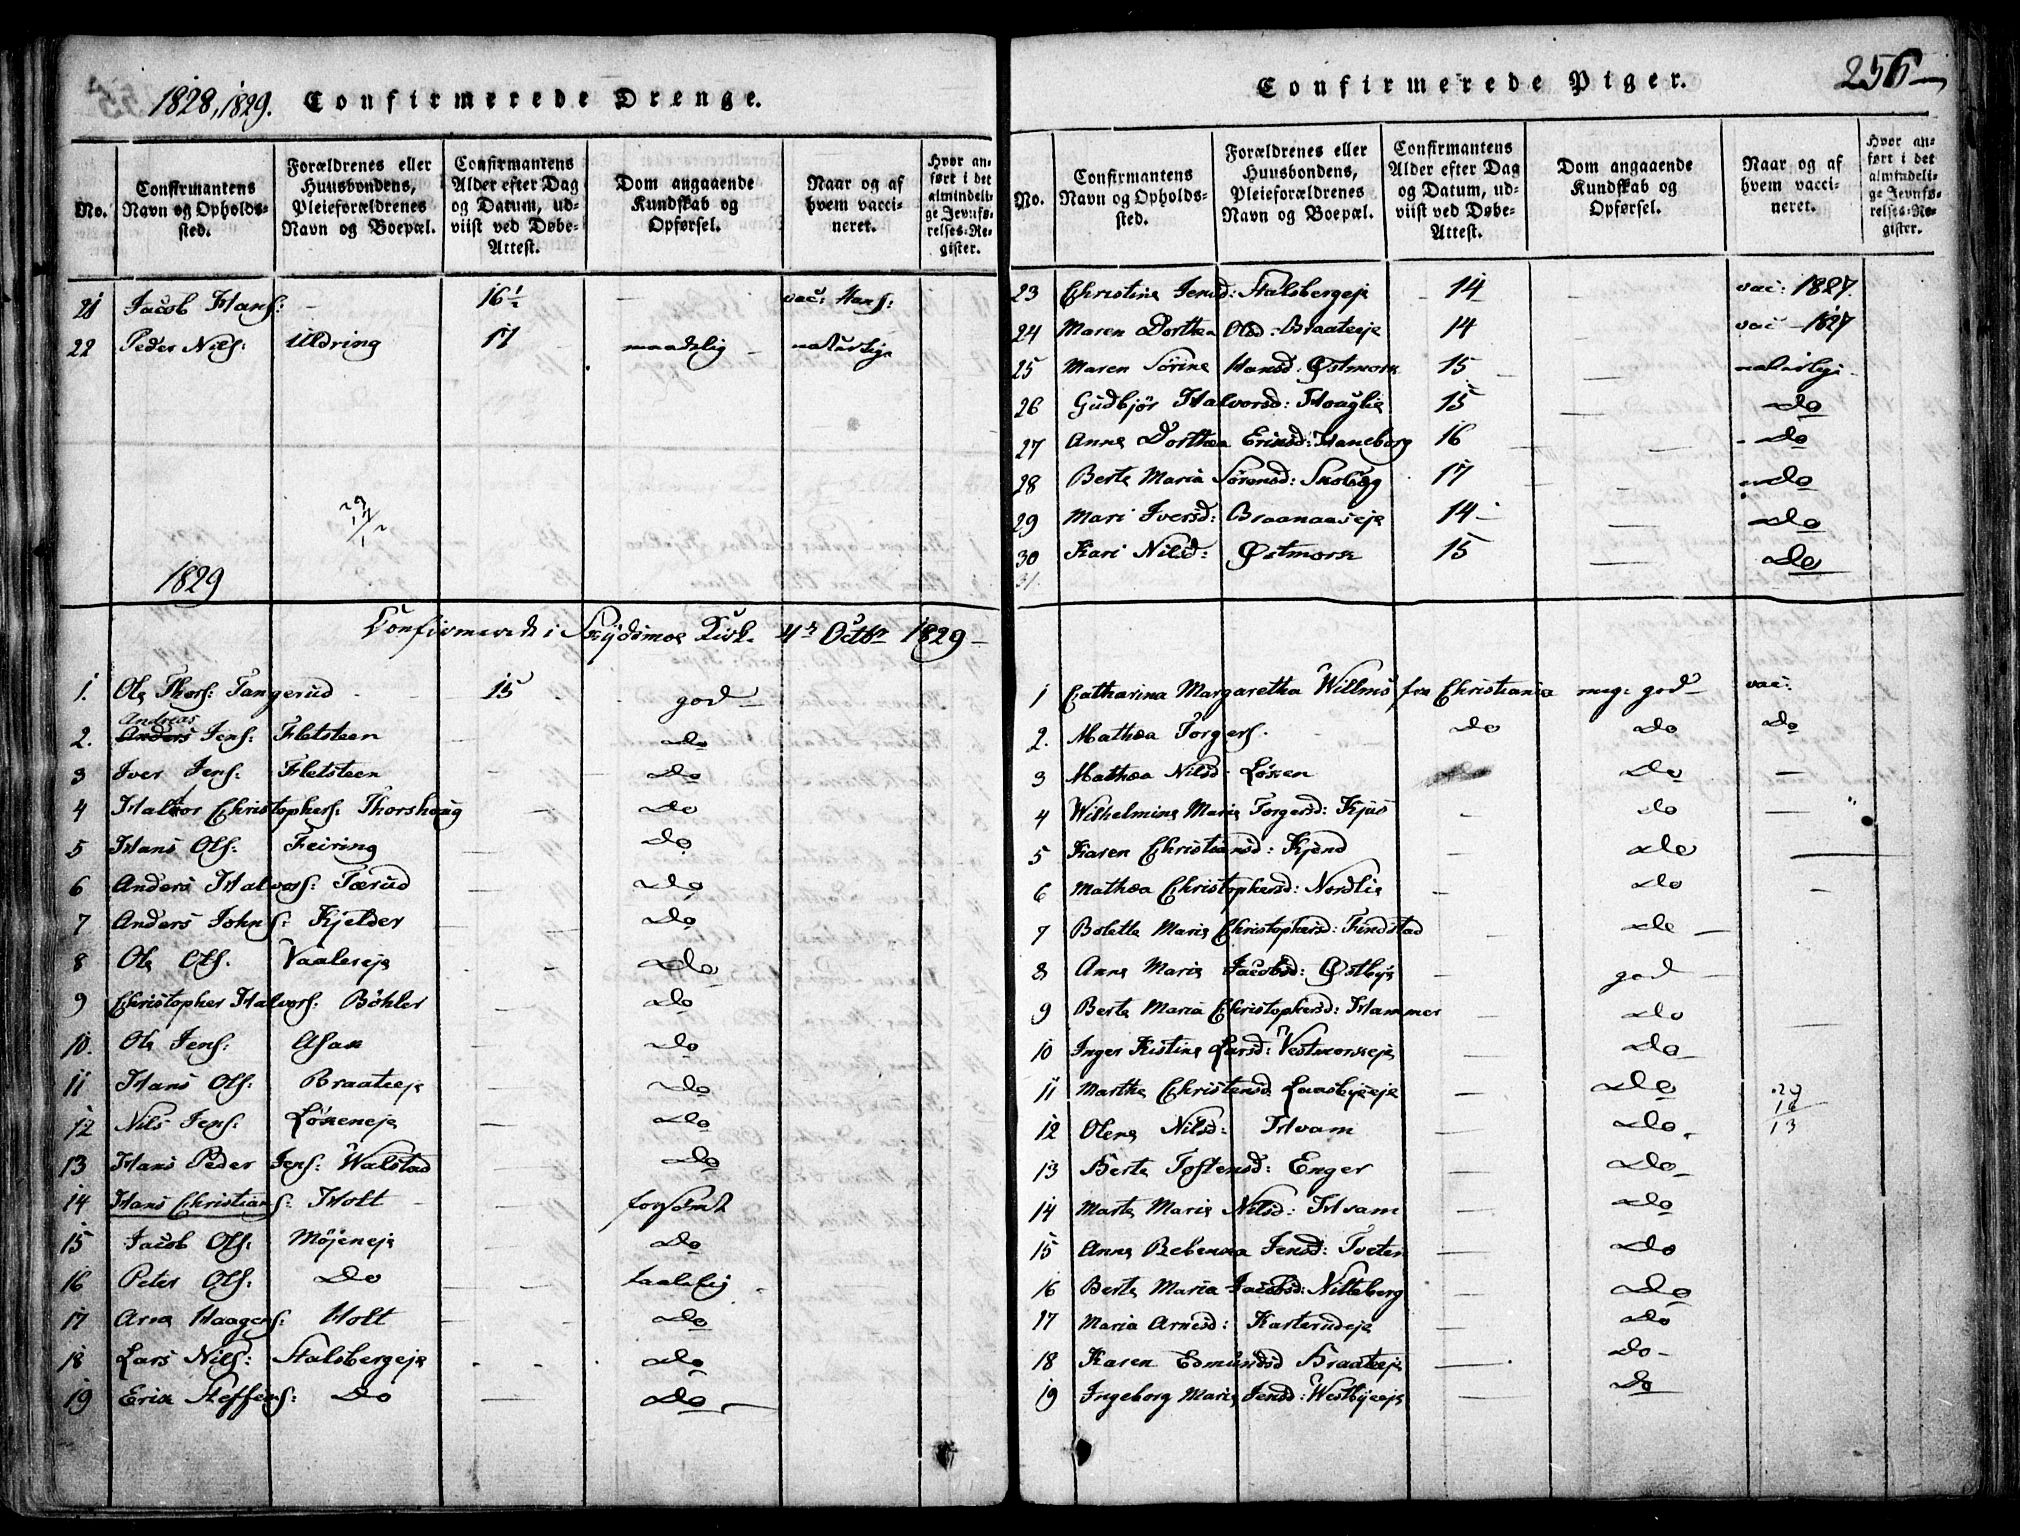 1828, 1829. Confirmerede Drenge.
No. Confirmantens Navn og Opholdssted. Forældrenes eller Huusbondens, Pleieforældrenes Navn og Boepæl. Confirmantens Alder efter Dag og Datum, udviist ved Døbe-Attest. Dom angaaende Kundskab og Opførsel. Naar og af hvem vaccineret. Hvor anført i det almindelige Jevnførelses-Register.
21 Jacob Hans: - 16½ - vac: Hans:
22 Peder Nils: Uldring 17 maadelig naturlige
29
17/
1829
Confirmerede i Skydsmoe Kirk. 4de Octbr 1829
1. Ole Thors: Tangerud 15 god
2. Anders Andreas Jens: Fletsteen Do
3 Iver Jens: Fletsteen Do
4 Halvor Christophers: Thorshaug Do
5 Hans Ols: Feiring Do
6 Anders Halvors: Tærud Do
7 Anders Johns: Kjelder Do
8 Ole Ols. Vaalereje Do
9 Christopher Halvors: Böhler Do
10. Ole Jens: Asak Do
11 Hans Ols: Braateeje Do
12 Nils Jens: Løkeneje Do
13 Hans Peder Jens: Walstad Do
14 Hans Christians: Holt forsömt
15 Jacob Ols: Møjeneje Do
16 Peter Ols: Do taalelig
17 Arne Haagens: Holt Do
18 Lars Nils: Stalsbergeje Do
19 Erik Steffens: Do Do
Confirmerede Piger. 256
No. Confirmantens Navn og Opholdssted. Forældrenes eller Huusbondens, Pleieforældrenes Navn og Boepæl. Confirmantens Alder efter Dag og Datum, udviist ved Døbe-Attest. Dom angaaende Kundskab og Opførsel. Naar og af hvem vaccineret. Hvor anført i det almindelige Jevnførelses-Register.
23 Christine Jensd: Stalsbergeje 14 vac: 1827.
24 Maren Dorthea Olsd: Braateeje 14 vac 1827
25 Maren Sörine Hansd: Østmork 15 naturlige
26 Gudbjör Halvorsd: Hoaglie 15 Do
27 Anne Dorthea Eriksd: Haneborg 16 Do
28 Berte Maria Sörensd: Skoleg 17 Do
29 Mari Iversd: Braanaaseje 14 Do
30 Kari Nilsd: Østmork 15 Do
31.
1 Catharina Margaretha Willms fra Christiania meg: god vac:
2. Mathea Torgers. Do Do Do
3 Mathea Nilsd. Løken Do
4 Wilhelmine Marie Torgersd: Kjus Do
5 Karen Christiansd: Kjend Do
6 Mathea Christophersd: Nordlie Do
7 Bolette Marie Christophersd: Findstad Do
8 Anne Marie Jacobsd: Østbye god
9 Berte Maria Christophersd: Hammer Do
10 Inger Kistine Larsd: Vestmorkeje Do
11 Marthe Christensd Laasbyeeje Do
29
16
13
12 Olene Nilsd: Hvam Do
13 Berte Tostensd: Enger Do
14 Marte Marie Nilsd: Hvam Do
15 Anne Rebenea Jensd: Tveter Do
16 Berte Maria Jacobsd: Nitteberg Do
17 Maria Arnesd: Karterudeje Do
18 Karen Edmundsd Braateeje Do
19 Ingeborg Marie Jensd: Westbyeeje Do